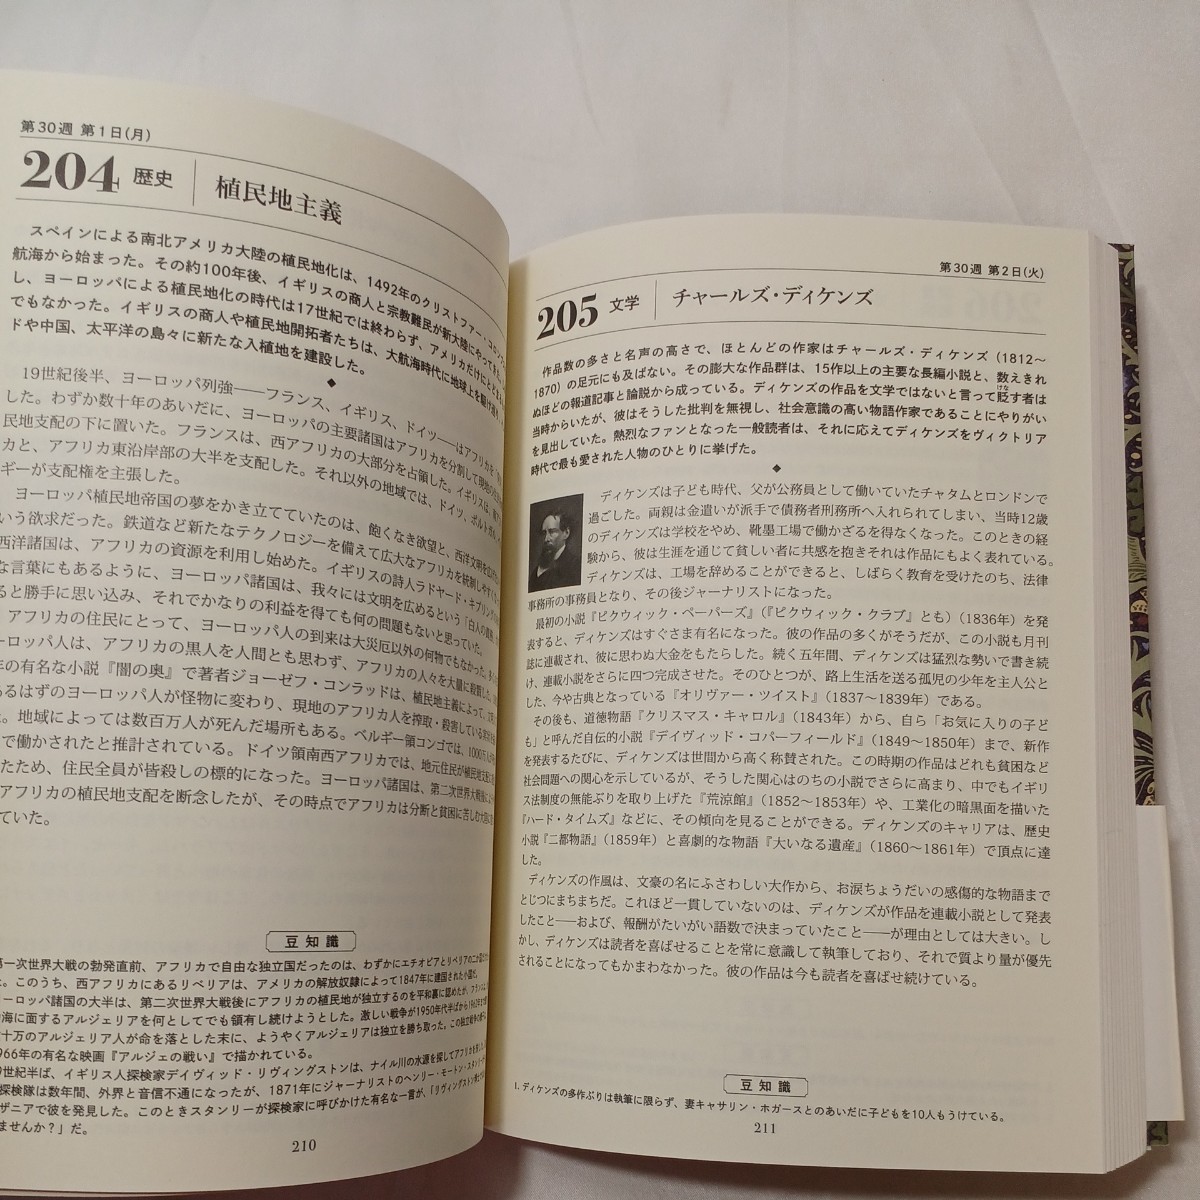 第30週 第1日(月)
204 歴史 植民地主義
スペインによる南北アメリカ大陸の植民地化は、1492年のクリストファー・コロン
航海から始まった。その約100年後、イギリスの商人と宗教難民が新大陸にやって
し、ヨーロッパによる植民地化の時代は17世紀では終わらず、アメリカだけにとど
でもなかった。イギリスの商人や植民地開拓者たちは、大航海時代に地球上を駆け
ドや中国、太平洋の島々に新たな入植地を建設した。
◆
19世紀後半、ヨーロッパ列強――フランス、イギリス、ドイツ――はアフリカを
した。わずか数十年のあいだに、ヨーロッパの主要諸国はアフリカを分割して現地の
民地支配の下に置いた。フランスは、西アフリカの大部分を占領した。イギリスは、
カと、アフリカ東沿岸部の大半を支配した。それ以外の地域では、ドイツ、ポルトガル、
ギーが支配権を主張した。
ヨーロッパ植民地帝国の夢をかき立てていたのは、飽くなき欲望と、西洋文明を
いう欲求だった。鉄道など新たなテクノロジーを備えて広大なアフリカを統制しやすく
西洋諸国は、アフリカの資源を利用し始めた。イギリスの詩人ラドヤード・キプリング
な言葉にもあるように、ヨーロッパ諸国は、我々には文明を広めるという「白人の
ると勝手に思い込み、それでかなりの利益を得ても何の問題もないと思っていた。
アフリカの住民にとって、ヨーロッパ人の到来は大災厄以外の何物でもなかった。
ーロッパ人は、アフリカの黒人を人間とも思わず、アフリカの人々を大量に殺した。
年の有名な小説『闇の奥』で著者ジョーゼフ・コンラッドは、植民地主義によって、
あるはずのヨーロッパ人が怪物に変わり、現地のアフリカ人を搾取・殺害している
。地域によっては数百万人が死んだ場所もある。ベルギー領コンゴでは、1000万人
で働かされたと推計されている。ドイツ領南西アフリカでは、地元住民が植民地支配に
たため、住民全員が皆殺しの標的になった。ヨーロッパ諸国は、第二次世界大戦後に
アフリカの植民地支配を断念したが、その時点でアフリカは分断と貧困に苦しむ
ていた。
豆知識
第一次世界大戦の勃発直前、アフリカで自由な独立国だったのは、わずかにエチオピアとリベリアの二か国
。このうち、西アフリカにあるリベリアは、アメリカの解放奴隷によって1847年に建国された小国だ。
ヨーロッパ諸国の大半は、第二次世界大戦後にアフリカの植民地が独立するのを平和裏に認めたが、フランスは
海に面するアルジェリアを何としてでも領有し続けようとした。激しい戦争が1950年代半ばから1962年まで
十万のアルジェリア人が命を落とした末に、ようやくアルジェリアは独立を勝ち取った。この独立戦争の
966年の有名な映画『アルジェの戦い』で描かれている。
9世紀半ば、イギリス人探検家デイヴィッド・リヴィングストンは、ナイル川の水源を探してアフリカを
探検隊は数年間、外界と音信不通になったが、1871年にジャーナリストのヘンリー・モートン・スタンリーが
ザニアで彼を発見した。このときスタンリーが探検家に呼びかけた有名な一言が、「リヴィングストン博士で
ませんか？」だ。
210
第30週 第2日(火)
205 文学 チャールズ・ディケンズ
作品数の多さと名声の高さで、ほとんどの作家はチャールズ・ディケンズ（1812～
1870）の足元にも及ばない。その膨大な作品群は、15作以上の主要な長編小説と、数えきれ
ぬほどの報道記事と論説から成っている。ディケンズの作品を文学ではないと言って貶す者は
当時からいたが、彼はそうした批判を無視し、社会意識の高い物語作家であることにやりがい
を見出していた。熱烈なファンとなった一般読者は、それに応えてディケンズをヴィクトリア
時代で最も愛された人物のひとりに挙げた。
◆
ディケンズは子ども時代、父が公務員として働いていたチャタムとロンドンで
過ごした。両親は金遣いが派手で債務者刑務所へ入れられてしまい、当時12歳
のディケンズは学校をやめ、靴墨工場で働かざるを得なくなった。このときの経
験から、彼は生涯を通じて貧しい者に共感を抱きそれは作品にもよく表れている。
ディケンズは、工場を辞めることができると、しばらく教育を受けたのち、法律
事務所の事務員となり、その後ジャーナリストになった。
最初の小説『ピクウィック・ペーパーズ』（『ピクウィック・クラブ』とも）（1836年）を発
表すると、ディケンズはすぐさま有名になった。彼の作品の多くがそうだが、この小説も月刊
誌に連載され、彼に思わぬ大金をもたらした。続く五年間、ディケンズは猛烈な勢いで書き続
け、連載小説をさらに四つ完成させた。そのひとつが、路上生活を送る孤児の少年を主人公と
した、今や古典となっている『オリヴァー・ツイスト』（1837～1839年）である。
その後も、道徳物語『クリスマス・キャロル』（1843年）から、自ら「お気に入りの子ど
も」と呼んだ自伝的小説『デイヴィッド・コパーフィールド』（1849～1850年）まで、新作
を発表するたびに、ディケンズは世間から高く称賛された。この時期の作品はどれも貧困など
社会問題への関心を示しているが、そうした関心はのちの小説でさらに高まり、中でもイギリ
ス法制度の無能ぶりを取り上げた『荒涼館』（1852～1853年）や、工業化の暗黒面を描いた
『ハード・タイムズ』などに、その傾向を見ることができる。ディケンズのキャリアは、歴史
小説『二都物語』（1859年）と喜劇的な物語『大いなる遺産』（1860～1861年）で頂点に達
した。
ディケンズの作風は、文豪の名にふさわしい大作から、お涙ちょうだいの感傷的な物語まで
とじつにまちまちだ。これほど一貫していないのは、ディケンズが作品を連載小説として発表
したこと――および、報酬がたいがい語数で決まっていたこと――が理由としては大きい。し
かし、ディケンズは読者を喜ばせることを常に意識して執筆しており、それで質より量が優先
されることになってもかまわなかった。彼の作品は今も読者を喜ばせ続けている。
豆知識
1. ディケンズの多作ぶりは執筆に限らず、妻キャサリン・ホガースとのあいだに子どもを10人もうけている。
211